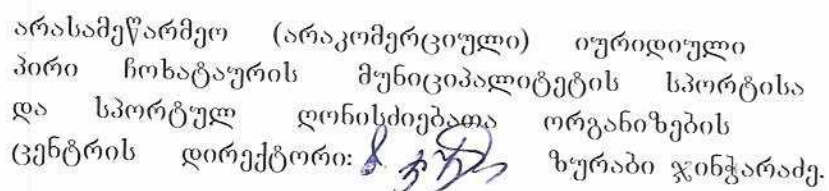 არასამეწარმეო (არაკომერციული) იურიდიული
პირი ჩოხატაურის მუნიციპალიტეტის სპორტისა
და სპორტულ ღონისძიებათა ორგანიზების
ცენტრის დირექტორი: ზურაბი ჯინჭარაძე.